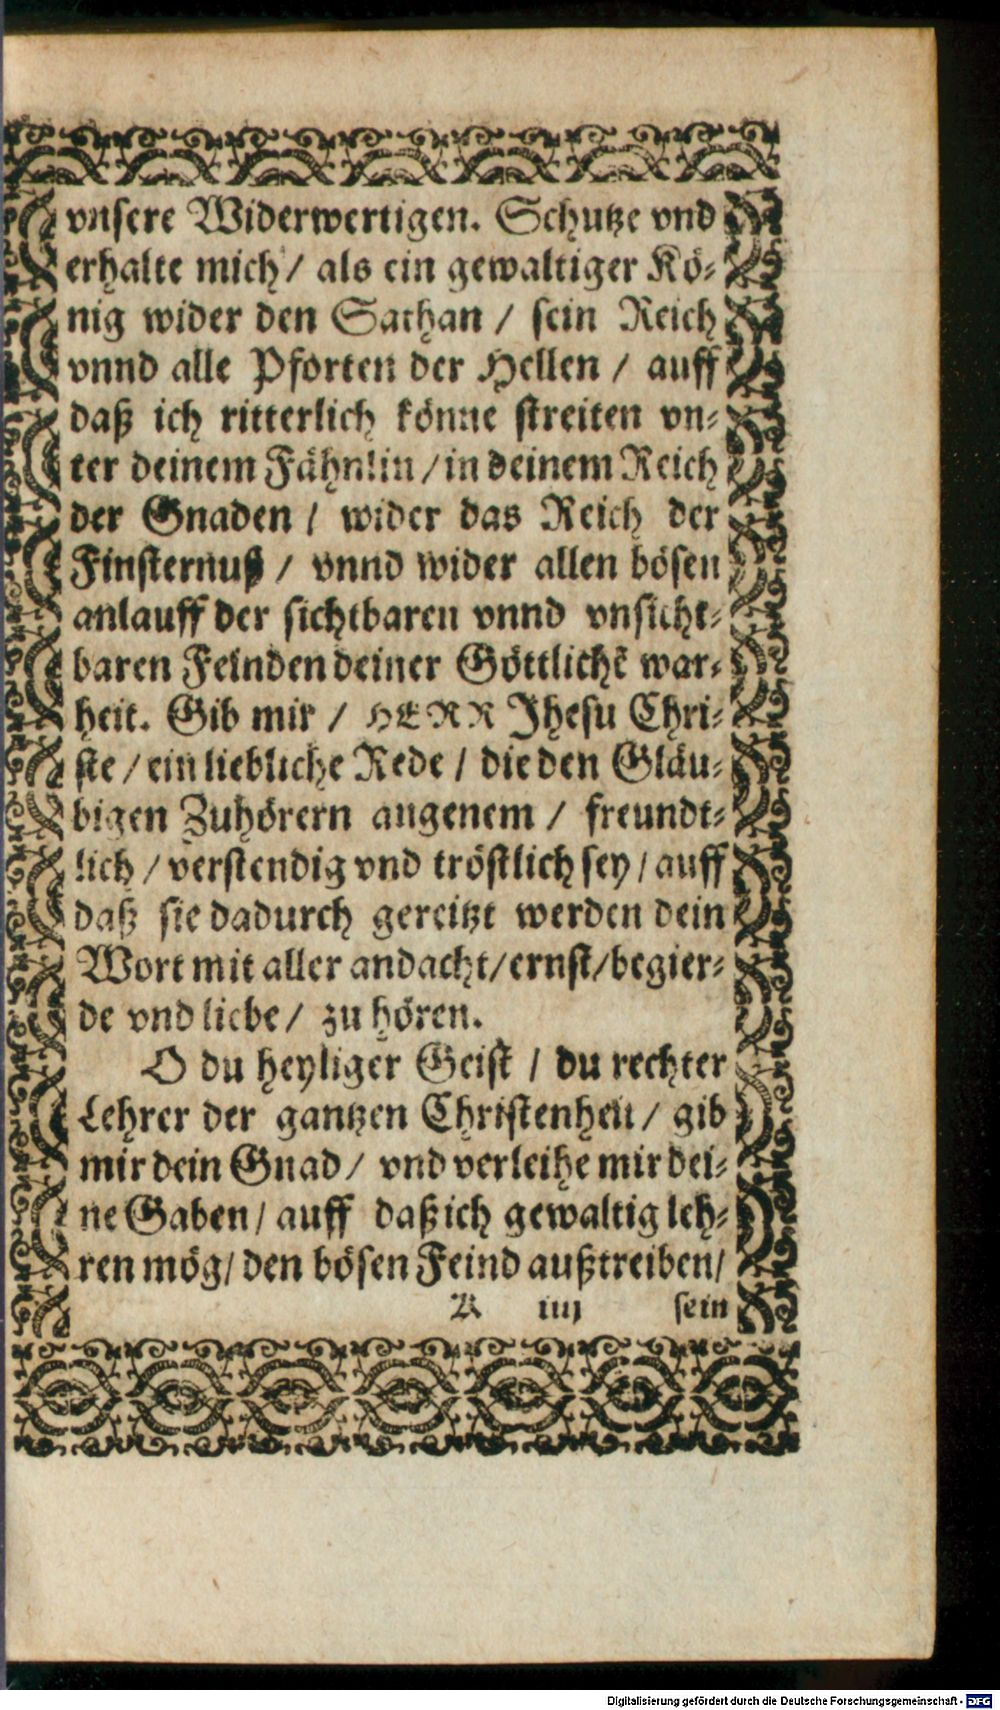 vnsere Widerwertigen. Schutze vnd
erhalte mich / als ein gewaltiger Kö-
nig wider den Sathan / sein Reich
vnnd alle Pforten der Hellen / auff
daß ich ritterlich könne streiten vn-
ter deinem Fähnlin / in deinem Reich
der Gnaden / wider das Reich der
Finsternuß / vnnd wider allen bösen
anlauff der sichtbaren vnnd vnsicht-
baren Feinden deiner Göttlichẽ war-
heit. Gib mir / HERR Jhesu Chri-
ste / ein liebliche Rede / die den Gläu-
bigen Zuhörern angenem / freundt-
lich / verstendig vnd tröstlich sey / auff
daß sie dadurch gereitzt werden dein
Wort mit aller andacht / ernst / begier-
de vnd liebe / zu hören.
O du heyliger Geist / du rechter
Lehrer der gantzen Christenheit / gib
mir dein Gnad / vnd verleihe mir dei-
ne Gaben / auff daß ich gewaltig leh-
ren mög / den bösen Feind außtreiben /
A iiij sein
Digitalisierung gefördert durch die Deutsche Forschungsgemeinschaft - DFG